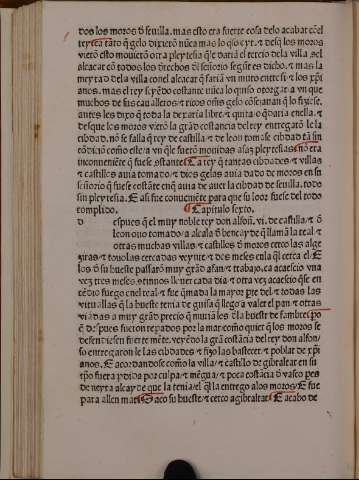 dos los moros d̃ seuilla. mas esto era fuerte cosa delo acabar cõ el
rey tãto q̃ gelo dixierõ nũca mas lo qiso oyr. ⁊ desq̃ los moros
vierõ esto mouierõ otra pleytesia q̃ le dariã el tercio dela villa ⁊ el
alcaçar cõ todos los derechos dl señorio segũt es dicho. ⁊ mas la
meytad dela villa con el alcaçar ⁊ fariã vn muro entre sy ⁊ los xp̃i
anos. mas el rey fernãdo costante nũca lo quiso otorgar a vn que
muchos de sus caualleros ⁊ ricos om̃s gelo cõsejauan q̃ lo fiziese.
antes les dixo q̃ toda la dexaria libre ⁊ quita o q̃daria enella. ⁊
desque los moros vierõ la grãd costancia del rey entregarõ le la
cibdad. nõ se falla q̃ rey de castilla ⁊ de leon tomase cibdad tã sin
cõdiciõ como ella avn q̃ le fuerõ mouidas asaz pleytesias nõ era
inconueniẽte q̃ fuese costante la rey q̃ tantas cibdades ⁊ villas
⁊ castillos auia tomado ⁊ dios gelas auia dado de moros en su
señorio q̃ fuese costãte en q̃ auia de auer la cibdad de seuilla. todo
sin pleytesia. E asi fue conueniẽte para que su loor fuese del todo
complido. Capitulo sexto.
d espues q̃ el muy noble rey don alfon. vi. de castilla ⁊ d̃
leon ouo tomado a alcala d̃ bençayde q̃ llamã la real ⁊
otras muchas villas ⁊ castillos d̃ moros cerco las alge
ziras ⁊ touo las cercadas veynte ⁊ dos meses en la q̃l cerca el ⁊
los d̃ su hueste pasarõ muy grãd afan ⁊ trabajo. ca acaescio vna
vez tres meses cõtinuos llouer cada dia ⁊ otra vez acaescio q̃ se en
cẽdio fuego en el real ⁊ fue q̃mado la mayor pte del ⁊ todas las
vituallas q̃ la hueste tenia de guisa q̃ llego a valer el pan ⁊ otras
viãdas a muy grãd precio q̃ muriã los dla hueste de fambre ⁊ po
q̃ despues fueron repados por la mar como quier q̃ los moros se
defendiesen fuerte mẽte. veyẽdo la grã costãcia del rey don alfon
so entregaron le las cibdades ⁊ fizo las bastecer ⁊ poblar de xp̃i
anos. E acordandose como la villa ⁊ castillo de gibraltar en su
tp̃o fuera pdida por culpa ⁊ mẽgua ⁊ poca costãcia d̃ vasco pes
de neyra alcayde que la tenia ⁊ el q̃l la entrego alos moros E fue
para allen mar. Saco su hueste ⁊ cerco a gibraltar E acabo de